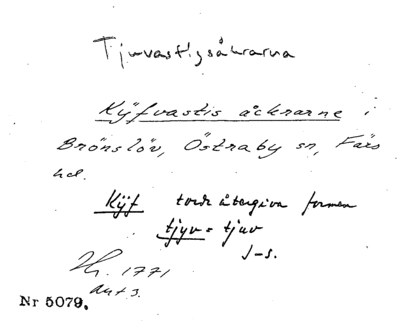 Tjuvastigsåkrarna
Kÿfvastis åckrarne i
Brönslöv, Östraby sn, Färs
hd.
Kÿf torde återgiva formen
tjyv = tjuv
J-s.
1771
Akt 3.
Nr 5079.